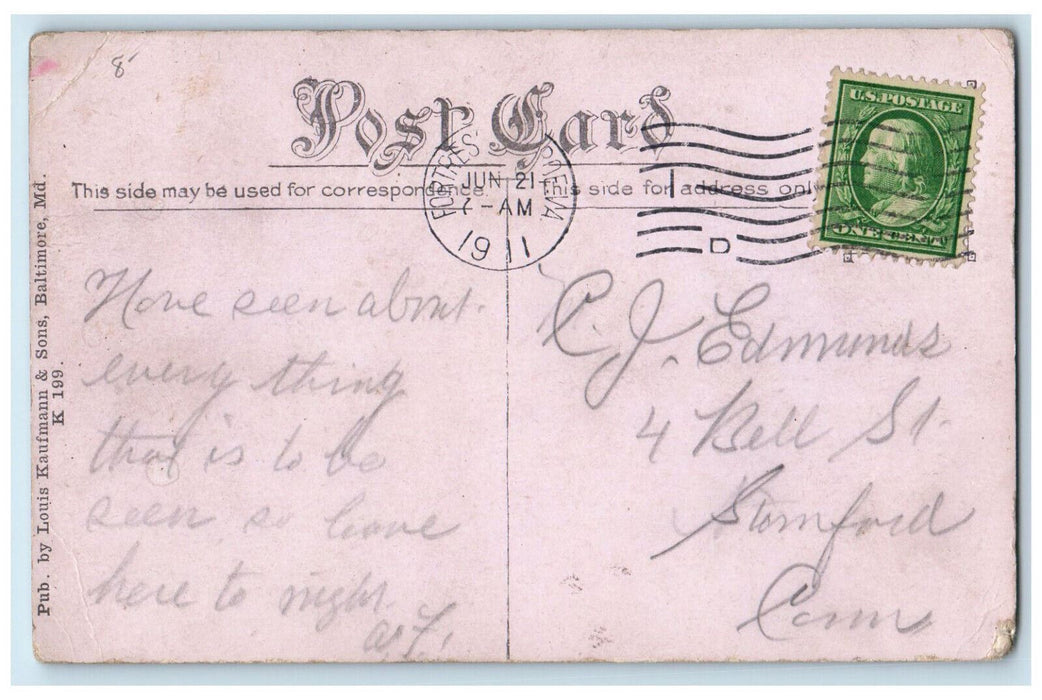 8
Post Card
This side may be used for correspondence. This side for address only
FORTRES MONROE VA
JUN 21
7-AM
1911
D
U.S. POSTAGE
ONE CENT
Pub. by Louis Kaufmann & Sons, Baltimore, Md.
K 199.
Have seen about
every thing
that is to be
seen so leave
here to night.
C. J. Edmunds
4 Bell St.
Stamford
Conn